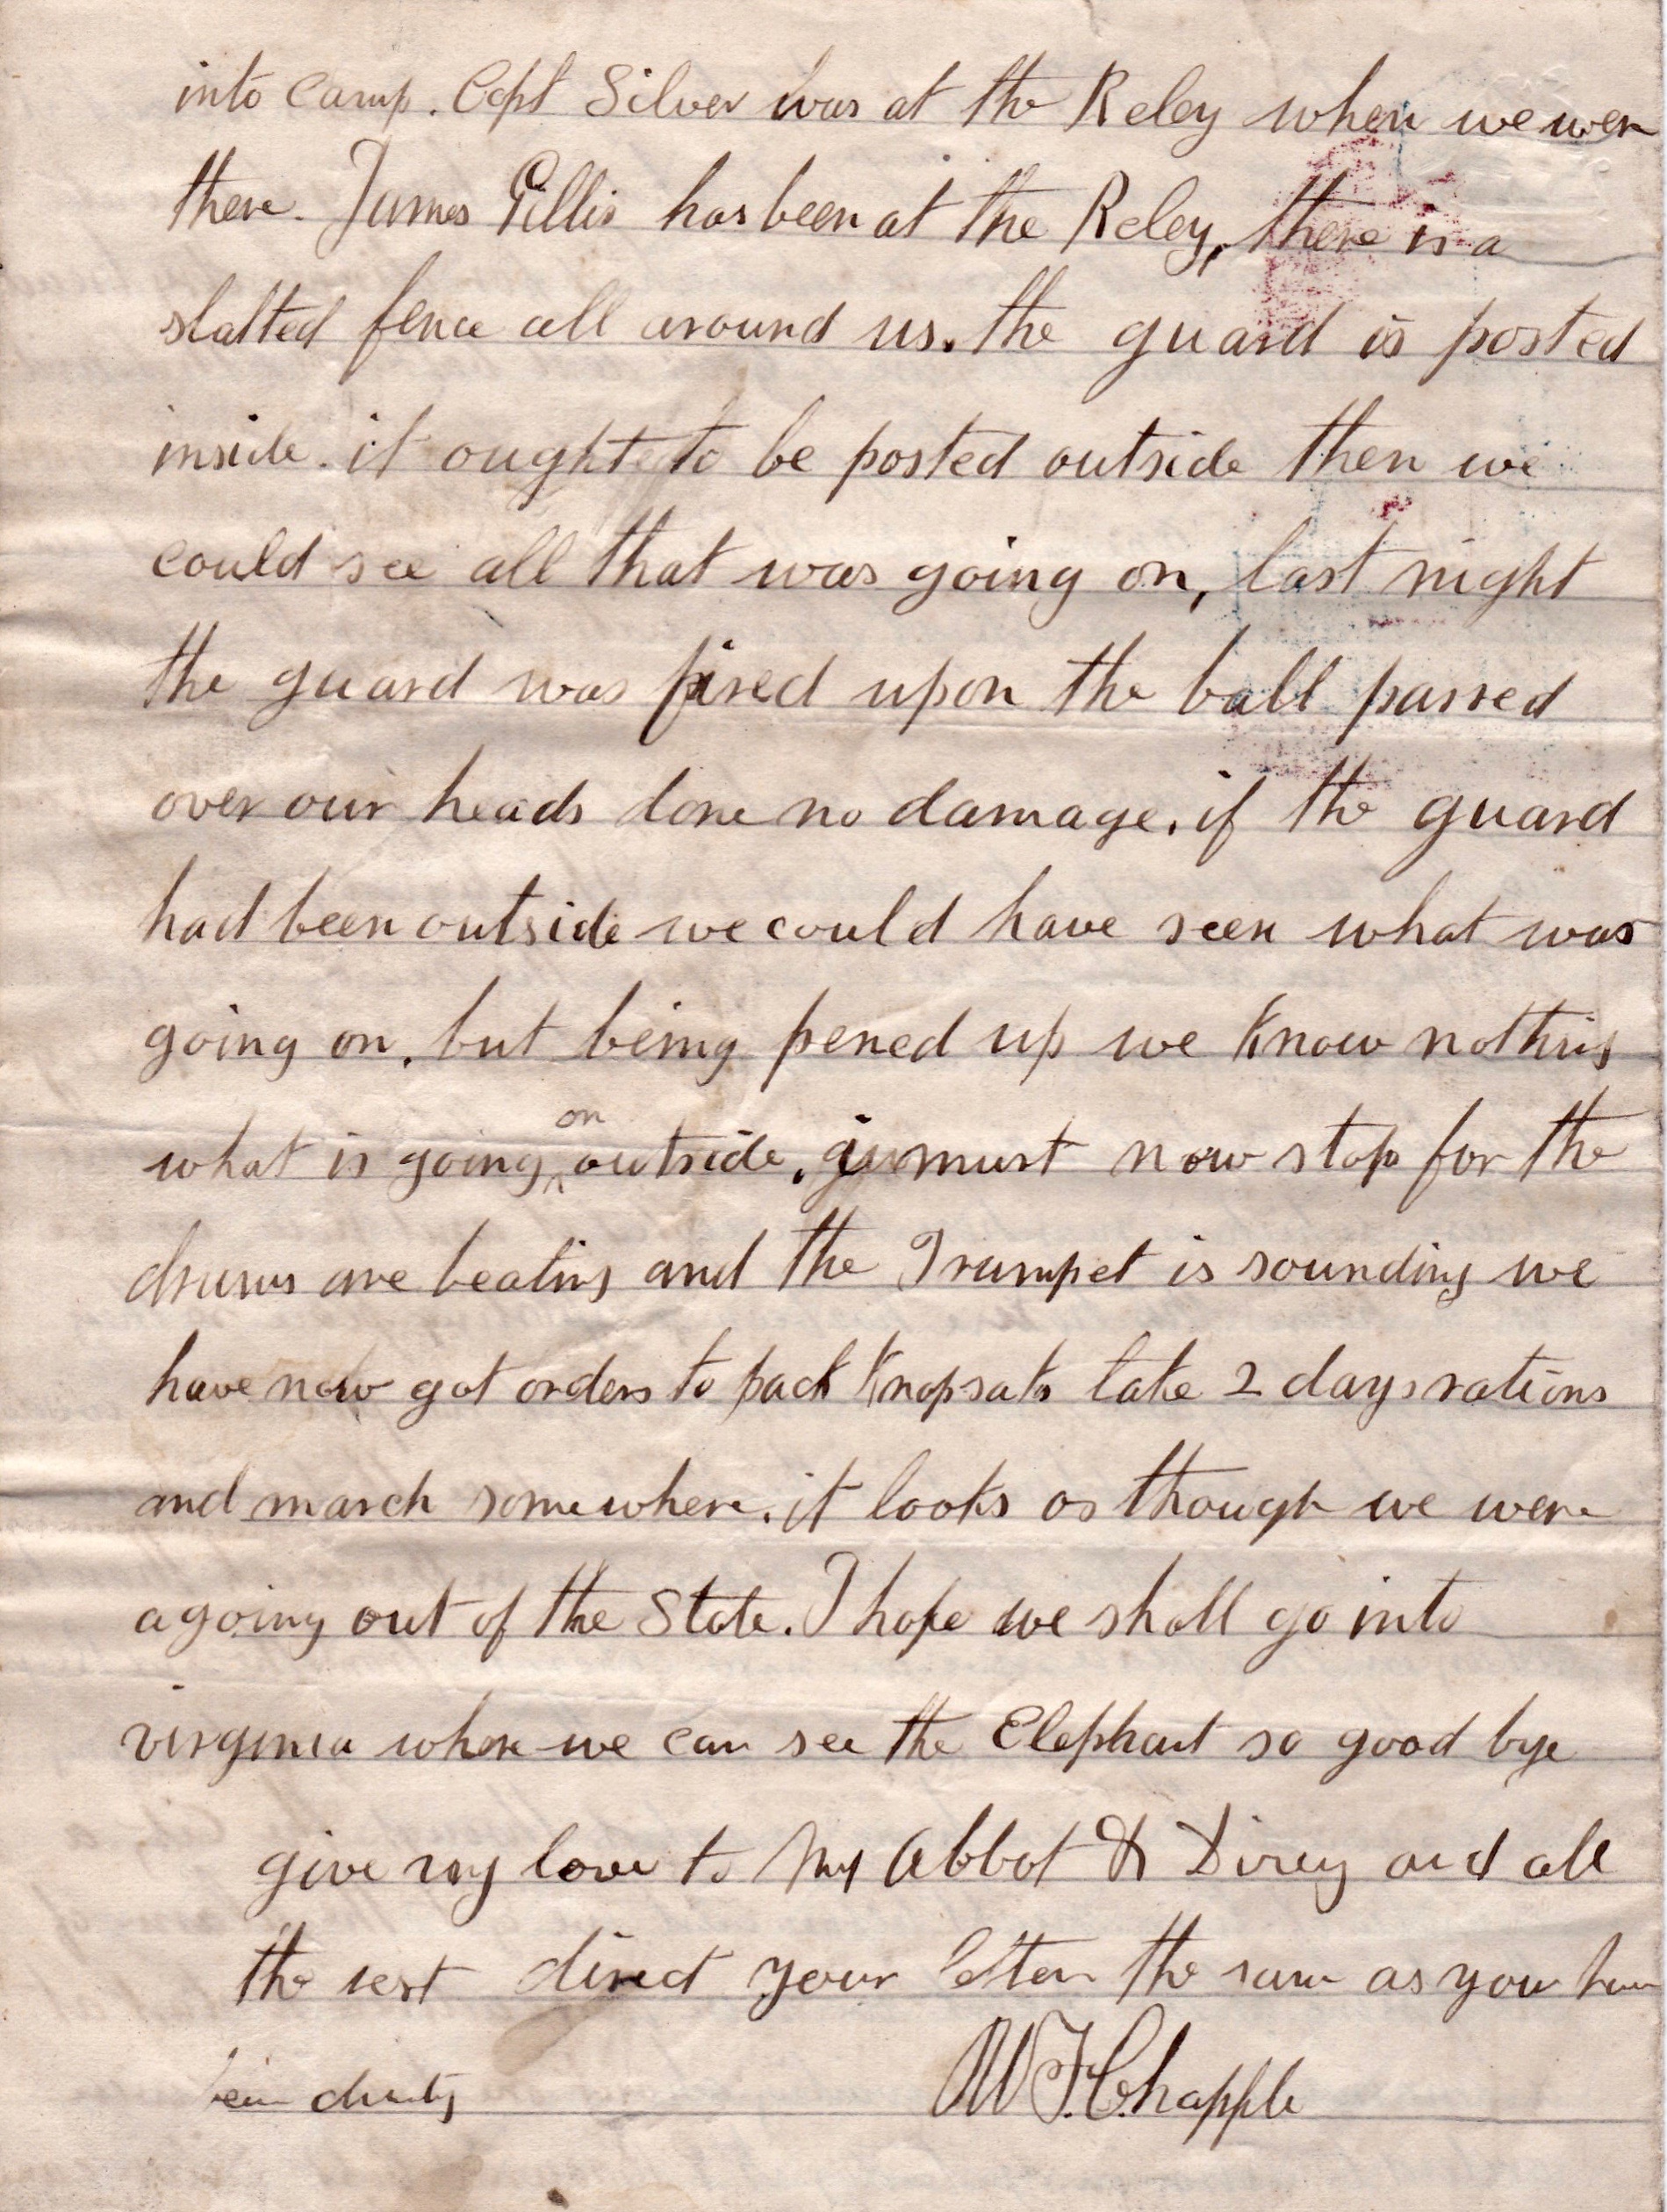 into Camp. Capt Silver was at the Reley when we were
there. James Gillis has been at the Reley, there is a
slatted fence all around us. the guard is posted
inside. it ought to be posted outside then we
could see all that was going on, last night
the guard was fired upon the ball passed
over our heads done no damage. if the guard
had been outside we could have seen what was
going on. but being pened up we know nothing
what is going on outside. must now stop for the
drums are beating and the Trumpet is sounding we
have now got orders to pack Knapsaks take 2 days rations
and march somewhere. it looks as though we were
agoing out of the State. I hope we shall go into
virginia where we can see the Elephant so good bye
give my love to Abbot & and all
the rest direct your letters the same as you have
been
W F. Chapple